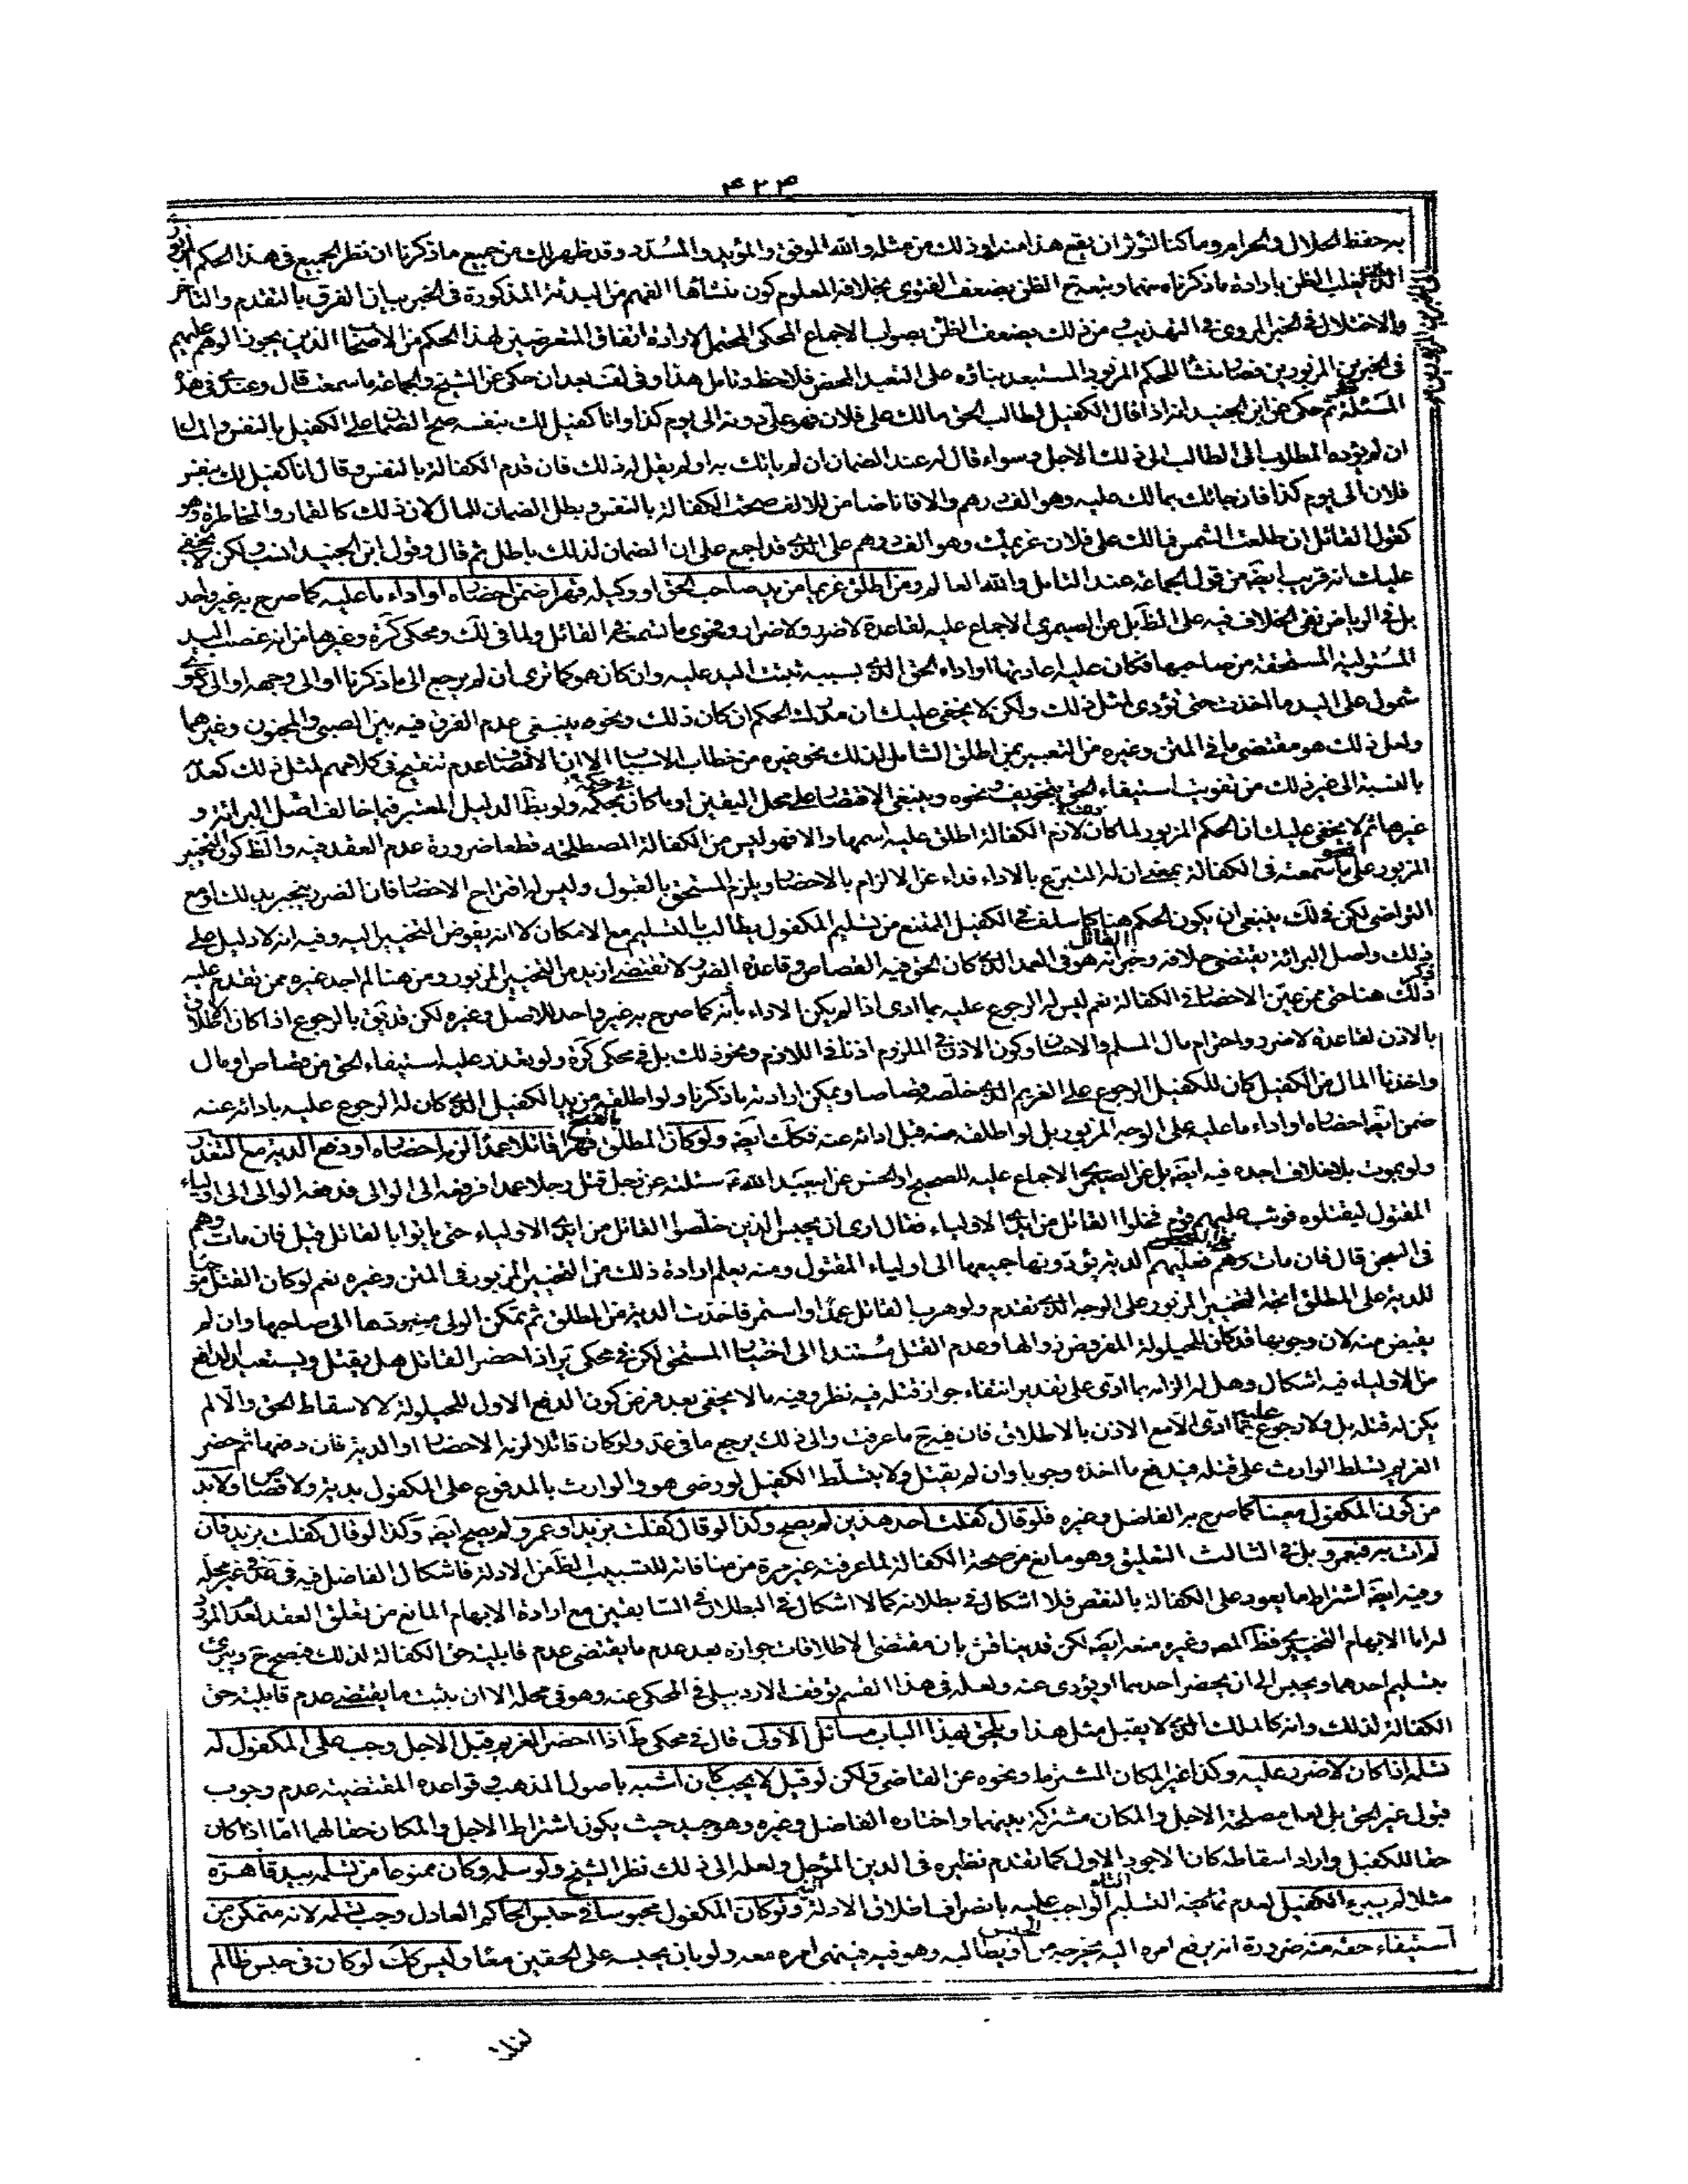 ۴۲۴
به حفظ الحلال والحرام وما كنا لنؤثر ان يقع هذا منه او ذلك من مثله والله الموفق والمؤيد والمسدد وقد ظهر لك من جميع ما ذكرنا ان نظر الجميع في هذا الحكم
يغلب الظن بارادة ما ذكرناه منهما وبه الظن بضعف الفتوى بخلافه المعلوم كون منشأها الفهم من المذكورة في الخبر بيان الفرق بالتقدم والتأخر
والاختلال في الخبر المروي في التهذيب ومن ذلك يضعف الظن بصواب الاجماع المحكي المحتمل لارادة اتفاق المتعرضين لهذا الحكم من الاصحاب الذين يجوز الوهم عليهم
في الخبرين المزبورين فصار منشأ للحكم المزبور المستبعد بناؤه على التعبد المحض فلاحظ وتامل هذا وفي لف بعد ان حكى عن الشيخ والجماعة ما سمعت قال وعندي في هذه
المسئلة نظر ثم حكى عن ابن الجنيد انه اذا قال الكفيل لطالب الحق ما لك على فلان فهو على دونه الى يوم كذا وانا كفيل لك بنفسه صح الضمان على الكفيل بالنفس والمال
ان لم يؤده المطلوب الى الطالب الى ذلك الاجل وسواء قال له عند الضمان ان لم ياتك به او لم يقل له ذلك فان قدم الكفالة بالنفس وقال انا كفيل لك بنفس
فلان الى يوم كذا فان جائك بما لك عليه وهو الف درهم والا فانا ضامن للالف صحت الكفالة بالنفس وبطل الضمان للمال لان ذلك كالقمار والمخاطرة وهو
كقول القائل ان طلعت الشمس فما لك على فلان غريمك وهو الف درهم على الذي قد اجمع على ان الضمان لذلك باطل ثم قال وقول ابن الجنيد انسب ولكن لا يخفى
عليك انه قريب ايضا من قول الجماعة عند التامل والله العالم ومن اطلق غريما من يد صاحب الحق او وكيله قهرا ضمن احضاره او اداء ما عليه كما صرح به غير واحد
بل في الرياض نفي الخلاف فيه على الظ بل عن الصيمري الاجماع عليه لقاعدة لا ضرر ولا ضرار وفحوى ما تسمعه في القاتل ولما في لك ومحكي كره وغيرها من انه غصب اليد
المستولية المستحقة من صاحبها فكان عليه اعادتها او اداء الحق الذي بسببه تثبت اليد عليه وان كان هو كما ترى ان لم يرجع الى ما ذكرنا او الى وجهه او الى دعوى
شمول على اليد ما اخذت حتى تؤدى لمثل ذلك ولكن لا يخفى عليك ان مدرك الحكم ان كان ذلك ونحوه ينبغي عدم الفرق فيه بين الصبي والمجنون وغيرهما
ولعل ذلك هو مقتضى ما في المتن وغيره من التعبير بمن اطلق الشامل لذلك نحو غيره من خطاب الاسباب الا ان الانصاف عدم تنقيح في كلامهم لمثل ذلك كعدمه
بالنسبة الى غير ذلك من تفويت استيفاء الحق بتخويف ونحوه وينبغي الاقتصار على محل اليقين او ما كان بحكمه ولو بظ الدليل المعتبر فيما خالف اصل البرائة و
غيرها ثم لا يخفى عليك ان الحكم المزبور لما كان لازم الكفالة اطلق عليه اسمها والا فهو ليس من الكفالة المصطلحة قطعا ضرورة عدم العقد فيه والظ كون التخيير
المزبور على نحو ما سمعته في الكفالة بمعنى ان له التبرع بالاداء فداء عن الالزام بالاحضار ويلزم المستحق بالقبول وليس له اقتراح الاحضار فان الضرر ينجبر بذلك او مع
التراضي لكن في لك ينبغي ان يكون الحكم هنا كما سلف في الكفيل الممتنع من تسليم المكفول يطالب بالتسليم مع الامكان لا انه يفوض التخيير اليه وفيه انه لا دليل على
ذلك واصل البرائة يقتضي خلافه وخبر القاتل انه هو في العمد الذي كان الحق فيه القصاص وقاعدة الضرر لا تقتضي ازيد من التخيير المزبور ومن هنا لم اجد غيره ممن تقدم عليه
ذكر ذلك هنا حتى ممن عين الاحضار في الكفالة نعم ليس له الرجوع عليه بما ادى اذا لم يكن الاداء باذنه كما صرح به غير واحد للاصل وغيره لكن قد يق بالرجوع اذا كان الاطلاق
بالاذن لقاعدة لا ضرر واحترام مال المسلم والاحسان وكون الاذن في الملزوم اذنا في اللازم ونحو ذلك بل في محكي كره ولو تعذر عليه استيفاء الحق من قصاص او مال
واخذنا المال من الكفيل كان للكفيل الرجوع على الغريم الذي خلصه قصاصا ويمكن ارادته ما ذكرنا ولو اطلقه من يد الكفيل الذي كان له الرجوع عليه بادائه عنه
ضمن ايضا احضاره او اداء ما عليه على الوجه المزبور بل لو اطلقه منه قبل ادائه عنه فكك ايضا ولو كان المطلق قهرا قاتلا عمدا لزمه احضاره او دفع الدية مع التعذر
ولو بموت بلا خلاف اجده فيه ايضا بل عن الصيمري الاجماع عليه للصحيح او الحسن عن ابيعبد الله ع سئلته عن رجل قتل رجلا عمدا فرفع الى الوالي فدفعه الوالي الى اولياء
المقتول ليقتلوه فوثب عليهم قوم فخلوا القاتل من ايدي الاولياء فقال ارى ان يحبس الذين خلصوا القاتل من ايدي الاولياء حتى ياتوا بالقاتل قيل فان مات وهم
في السجن قال فان مات وهم فعليهم الدية يؤدونها جميعها الى اولياء المقتول ومنه يعلم ارادة ذلك من التخيير المزبور في المتن وغيره نعم لو كان القتل موجبا
للدية على المطلق اتجه التخيير المزبور على الوجه الذي تقدم ولو هرب القاتل عمدا واستمر فاخذت الدية من المطلق ثم تمكن الولي منه وجب ردها الى صاحبها وان لم
يقبض منه لان وجوبها قد كان للحيلولة المفروض زوالها وعدم القتل مستندا الى اختيار المستحق لكن في محكي ير اذا حضر القاتل هل يقتل ويستعيد الدافع
من الاولياء فيه اشكال وهل له الزامه بما ادى على تقدير انتفاء جواز قتله فيه نظر وفيه ما لا يخفى بعد فرض كون الدفع الاول للحيلولة لا لاسقاط الحق والا لم
يكن له قتله بل ولا رجوع عليه بما ادى الا مع الاذن بالاطلاق فان فيه ح ما عرفت والى ذلك يرجع ما في عد ولو كان قاتلا لزمه الاحضار او الدية فان دفعها ثم حضر
الغريم تسلط الوارث على قتله فيدفع ما اخذه وجوبا وان لم يقتل ولا يتسلط الكفيل لو رضي هو والوارث بالمدفوع على المكفول بدية ولا قصاص ولا بد
من كون المكفول معينا كما صرح به الفاضل وغيره فلو قال كفلت احد هذين لم يصح وكذا لو قال كفلت بزيد او عمرو لم يصح ايضا وكذا لو قال كفلت بزيد فان
لم ات به فبعمرو بل في الثالث التعليق وهو مانع من صحة الكفالة لما عرفته غير مرة من منافاته للتسبيب الظ من الادلة فاشكال الفاضل فيه في عد في غير محله
وفيه ايضا اشتراط ما يعود على الكفالة بالنقض فلا اشكال في بطلانه كما لا اشكال في البطلان في السابقين مع ارادة الابهام المانع من تعلق العقد لعدم المورد
له اما الابهام التخييري فظ المص وغيره منعه ايضا لكن قد يناقش بان مقتضى الاطلاقات جوازه بعد عدم ما يقتضي عدم قابلية حق الكفالة لذلك فيصح ح ويبرئ
بتسليم احدهما ويحبس الى ان يحضر احدهما او يؤدى عنه ولعله في هذا القسم توقف الاردبيلي في المحكي عنه وهو في محله الا ان يثبت ما يقتضي عدم قابلية حق
الكفالة لذلك وانه كالملك الذي لا يقبل مثل هذا ويلحق بهذا الباب مسائل الاولى قال في محكي ط اذا احضر الغريم قبل الاجل وجب على المكفول له
تسلمه اذا كان لا ضرر عليه وكذا غير المكان المشترط ونحوه عن القاضي ولكن لو قيل لا يجب كان اشبه باصول المذهب وقواعده المقتضية عدم وجوب
قبول غير الحق بل لعل مصلحة الاجل والمكان مشتركة بينهما واختاره الفاضل وغيره وهو جيد حيث يكون اشتراط الاجل والمكان حقا لهما اما اذا كان
حقا للكفيل واراد اسقاطه كان الاجود الاول كما تقدم نظيره في الدين المؤجل ولعله الى ذلك نظر الشيخ ولو سلمه وكان ممنوعا من تسلمه بيد قاهرة
مثلا لم يبرء الكفيل لعدم تمامية التسليم الواجب عليه بانصراف اطلاق الادلة اليه ولو كان المكفول محبوسا في حبس الحاكم العادل وجب تسلمه لانه متمكن من
استيفاء حقه منه ضرورة انه يرفع امره اليه يخرجه من الحبس او يطالبه وهو فيه فينهي امره معه ولو بان يحبسه على الحقين معا وليس كك لو كان في حبس ظالم